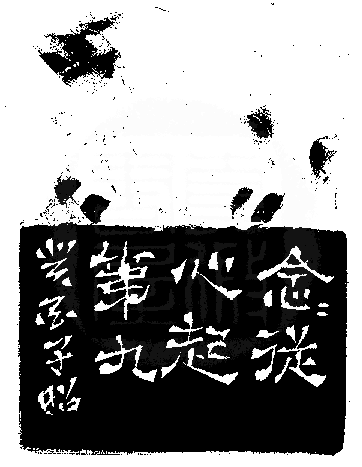 念〻從
心起
第九
子昭